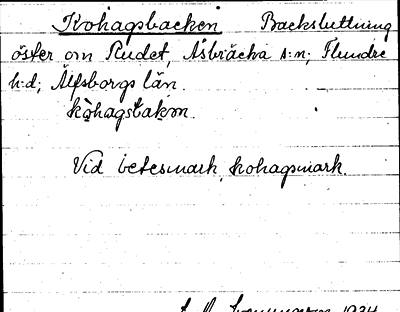 Kohagsbacken Backsluttning
öster om Rudet, Åsbräcka s:n; Flundre
h:d; Älfsborgs län.
kòhagsbakən.
Vid betesmark, kohagsmark.
1934